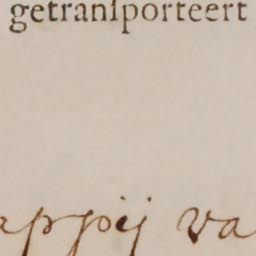 getranſporteert
appij va